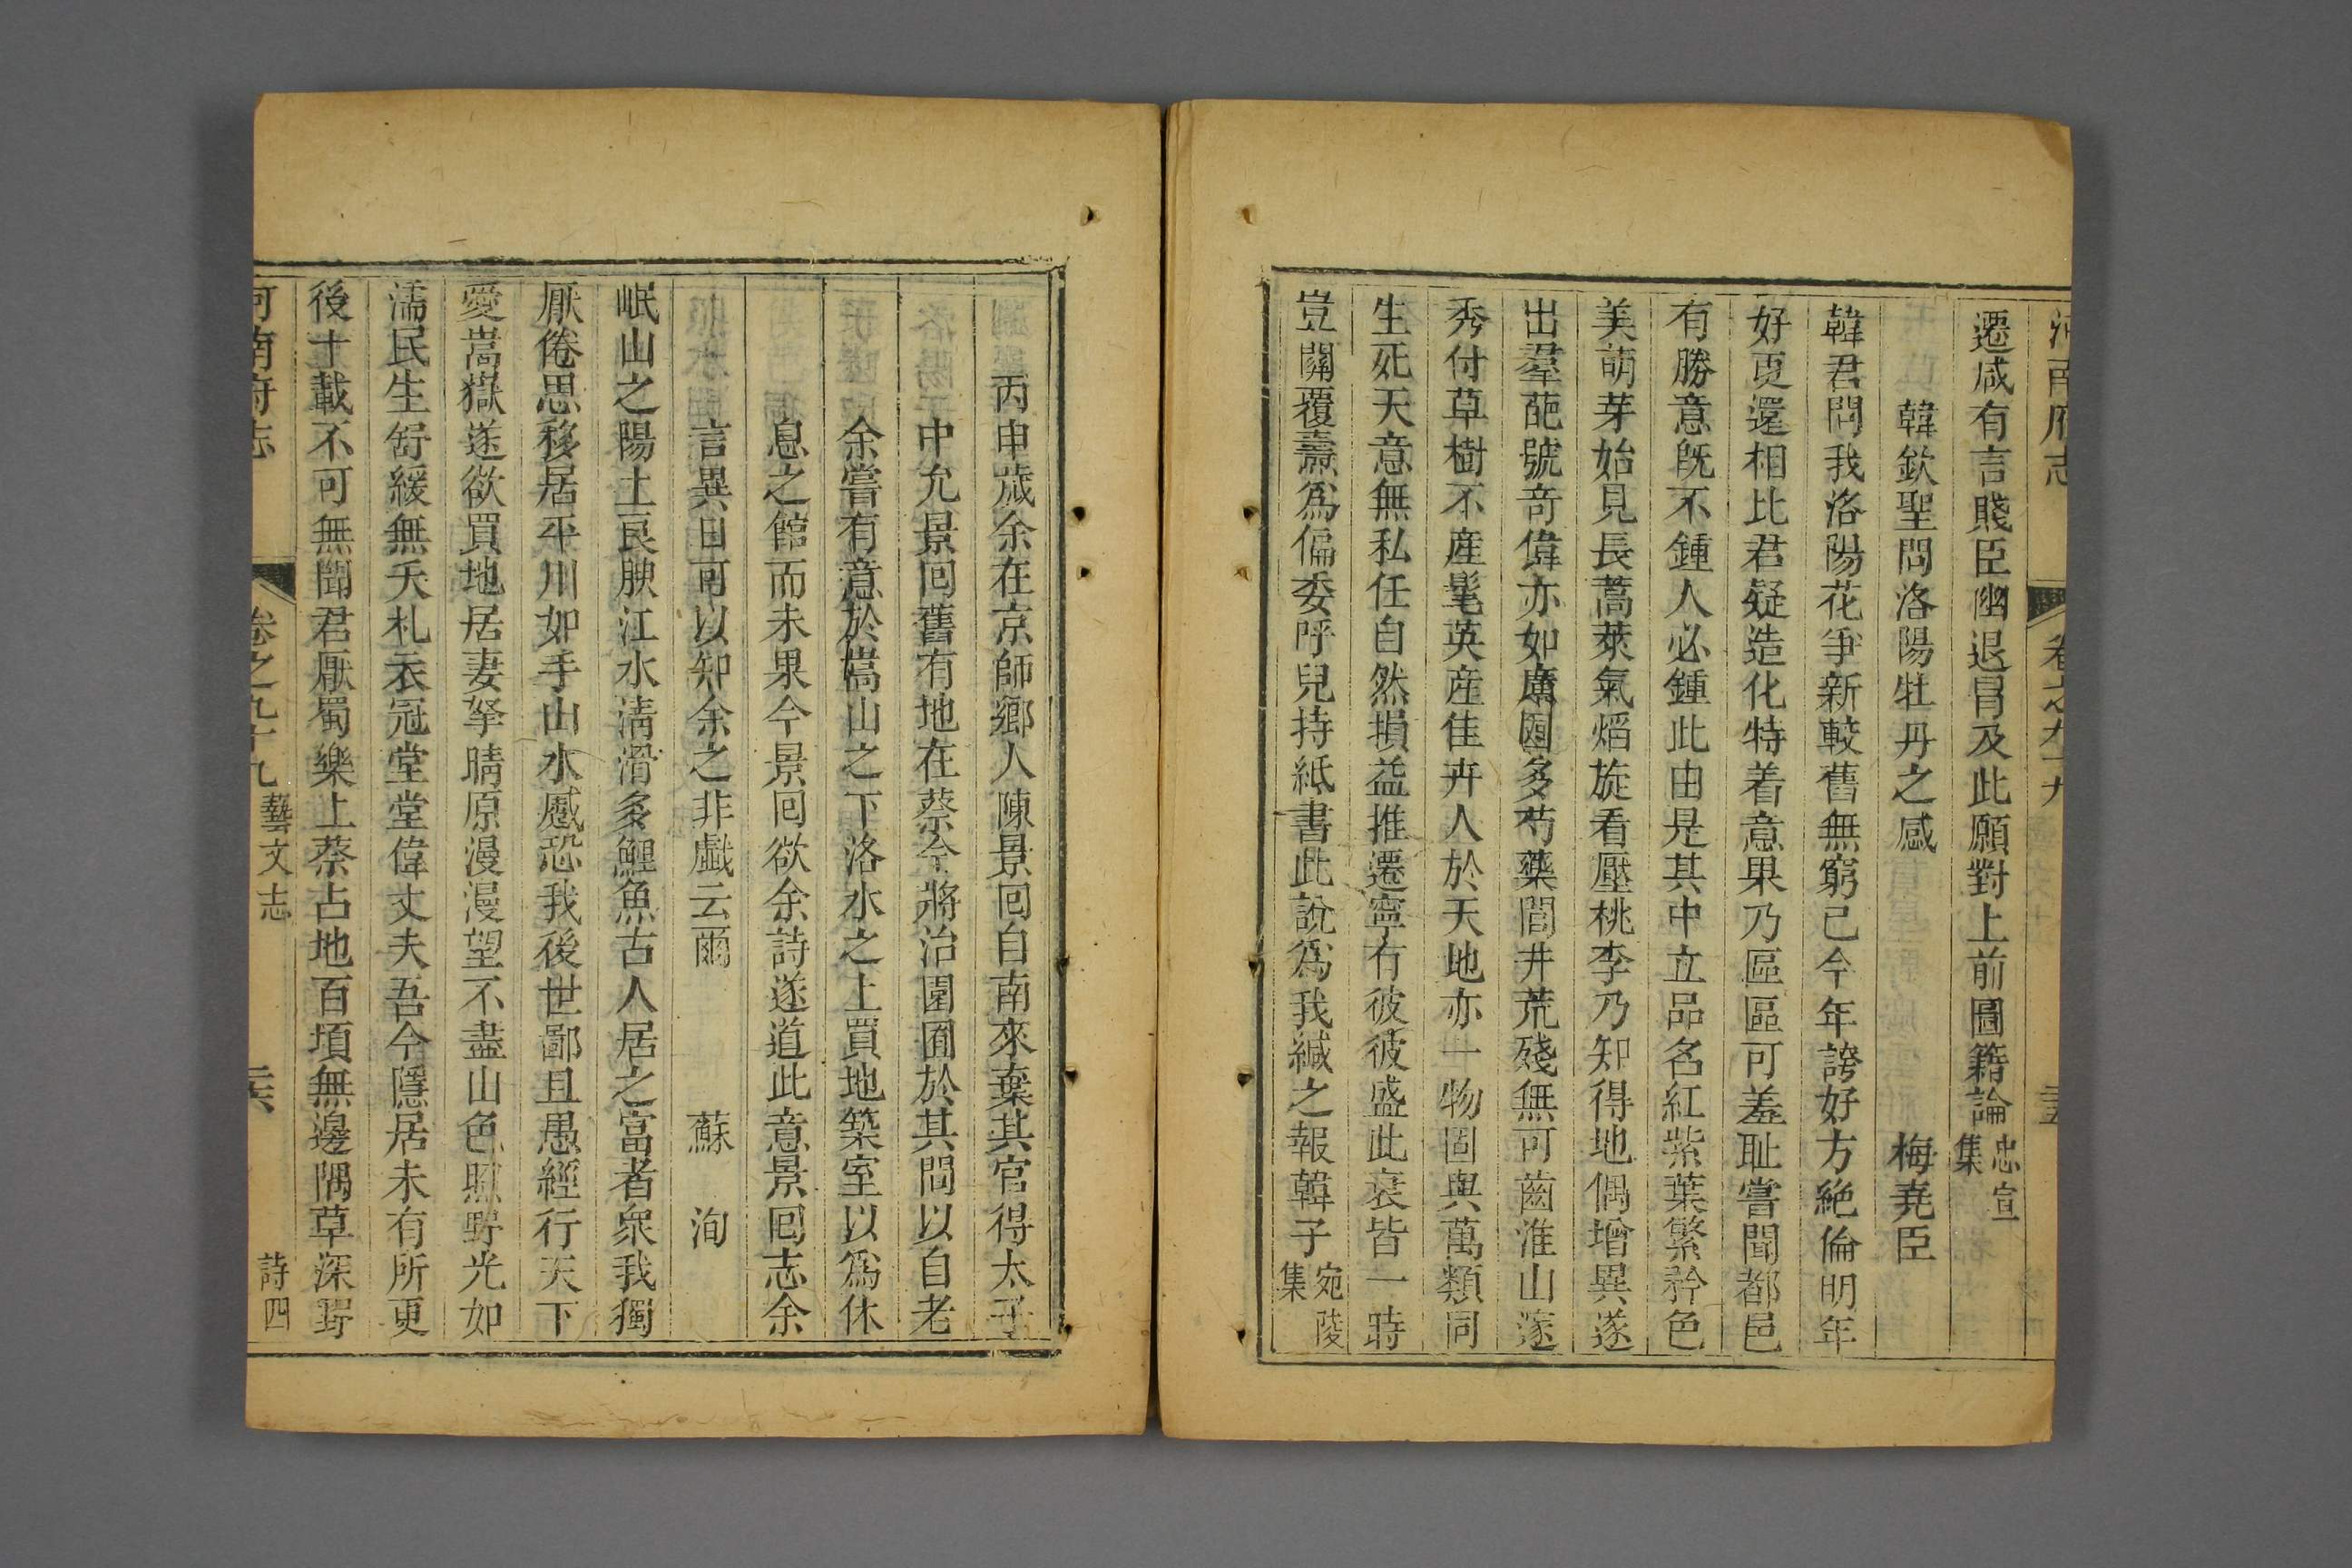 河南府志 卷之九十九 
遷咸有言賤臣幽退冐及此願對上前圖籍論忠宣集
韓欽聖問洛陽牡丹之感 梅堯臣
韓君問我洛陽花爭新較舊無窮已今年誇好方絶倫明年
好更還相比君疑造化特着意果乃區區可羞耻嘗聞都邑
有勝意既不鍾人必鍾此由是其中立品名紅紫葉繁矜色
美萌芽始見長蒿萊氣熖旋看壓桃李乃知得地偶增異遂
出羣葩號奇偉亦如廣園多芍藥閭井荒殘無可齒淮山邃
秀付草樹不産髦英産佳卉人於天地亦一物固與萬類同
生死天意無私任自然損益推遷寧有彼彼盛此衰皆一時
豈關覆燾爲偏委呼兒持紙書此說爲我緘之報韓子宛陵集
丙申歲余在京師鄉人陳景囘自南來棄其官得太子
中允景囘舊有地在蔡今將治園囿於其間以自老
余嘗有意於嵩山之下洛水之上買地築室以爲休
息之館而未果今景囘欲余詩遂道此意景囘志余
言異日可以知余之非戲云爾 蘇洵
岷山之陽土良腴江水清滑多鯉魚古人居之富者衆我獨
厭倦思移居平川如手山水蹙恐我後世鄙且愚經行天下
愛嵩嶽遂欲買地居妻孥晴原漫漫望不盡山色照野光如
濡民生舒緩無夭札衣冠堂堂偉丈夫吾今隱居未有所更
後十載不可無聞君厭蜀樂上蔡占地百頃無邊隅草深野
河南府志 卷之九十九 藝文志 詩四